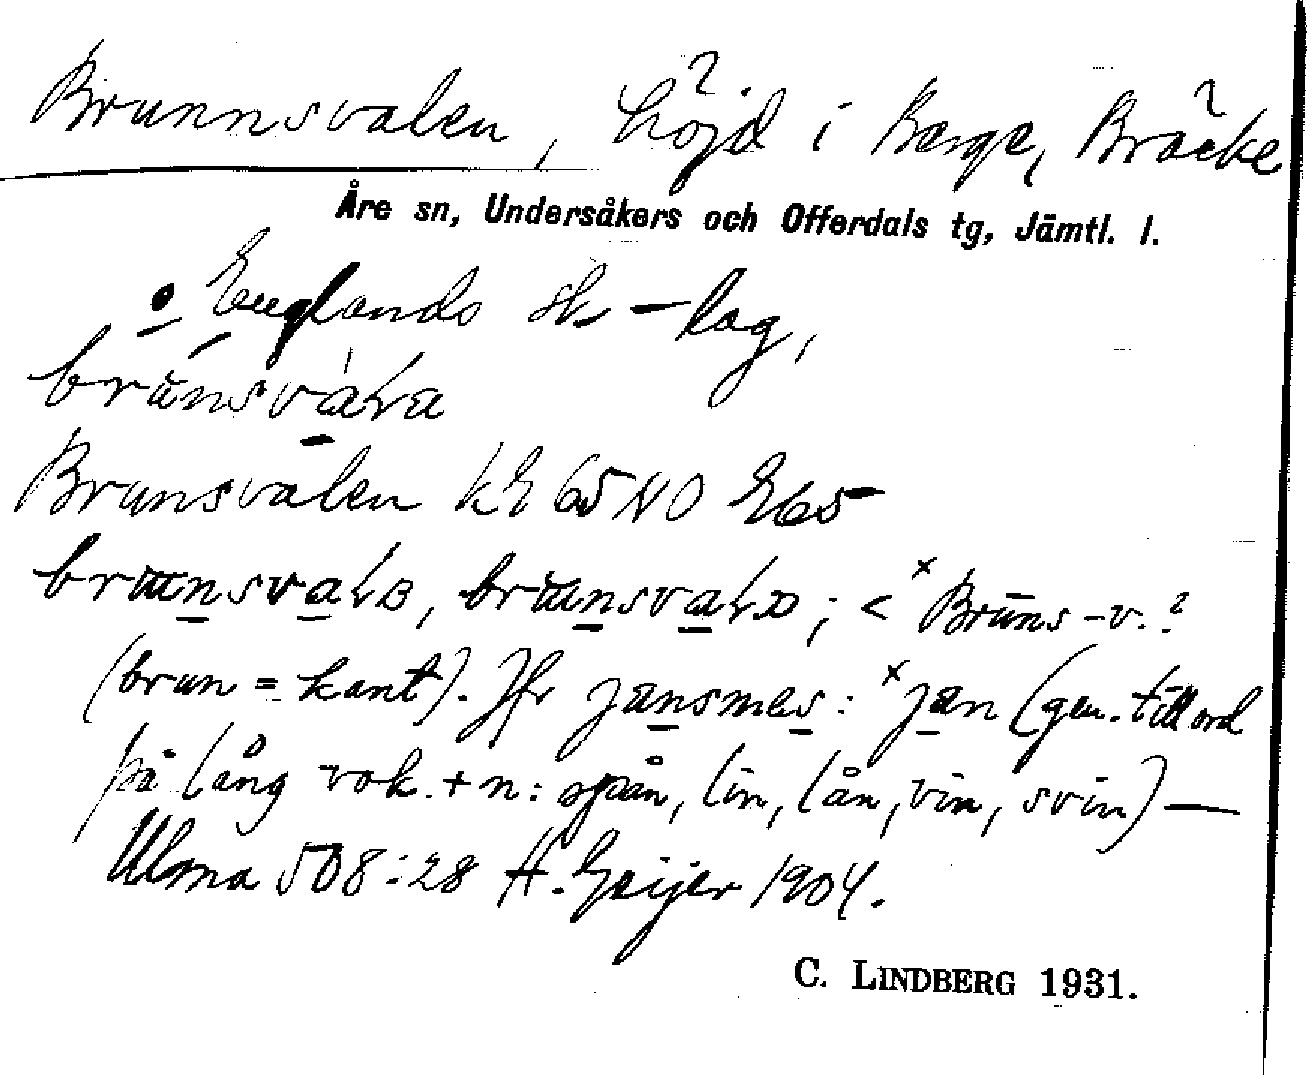 Brunnsvalen, höjd i Berge, Bräcke
Åre sn, Undersåkers och Offerdals tg, Jämtl. l.
o Englands sk-lag,
Brunsvalen kE 65 NO E65
< ˣBrūns-v.?
(brun = kant). Jfr jansmes: ˣjan (gen. till ord
på lång vok. + n: spån, lin, lån, vin, svin) —
Ulma 508:28 H. Geijer 1904.
C. LINDBERG 1931.